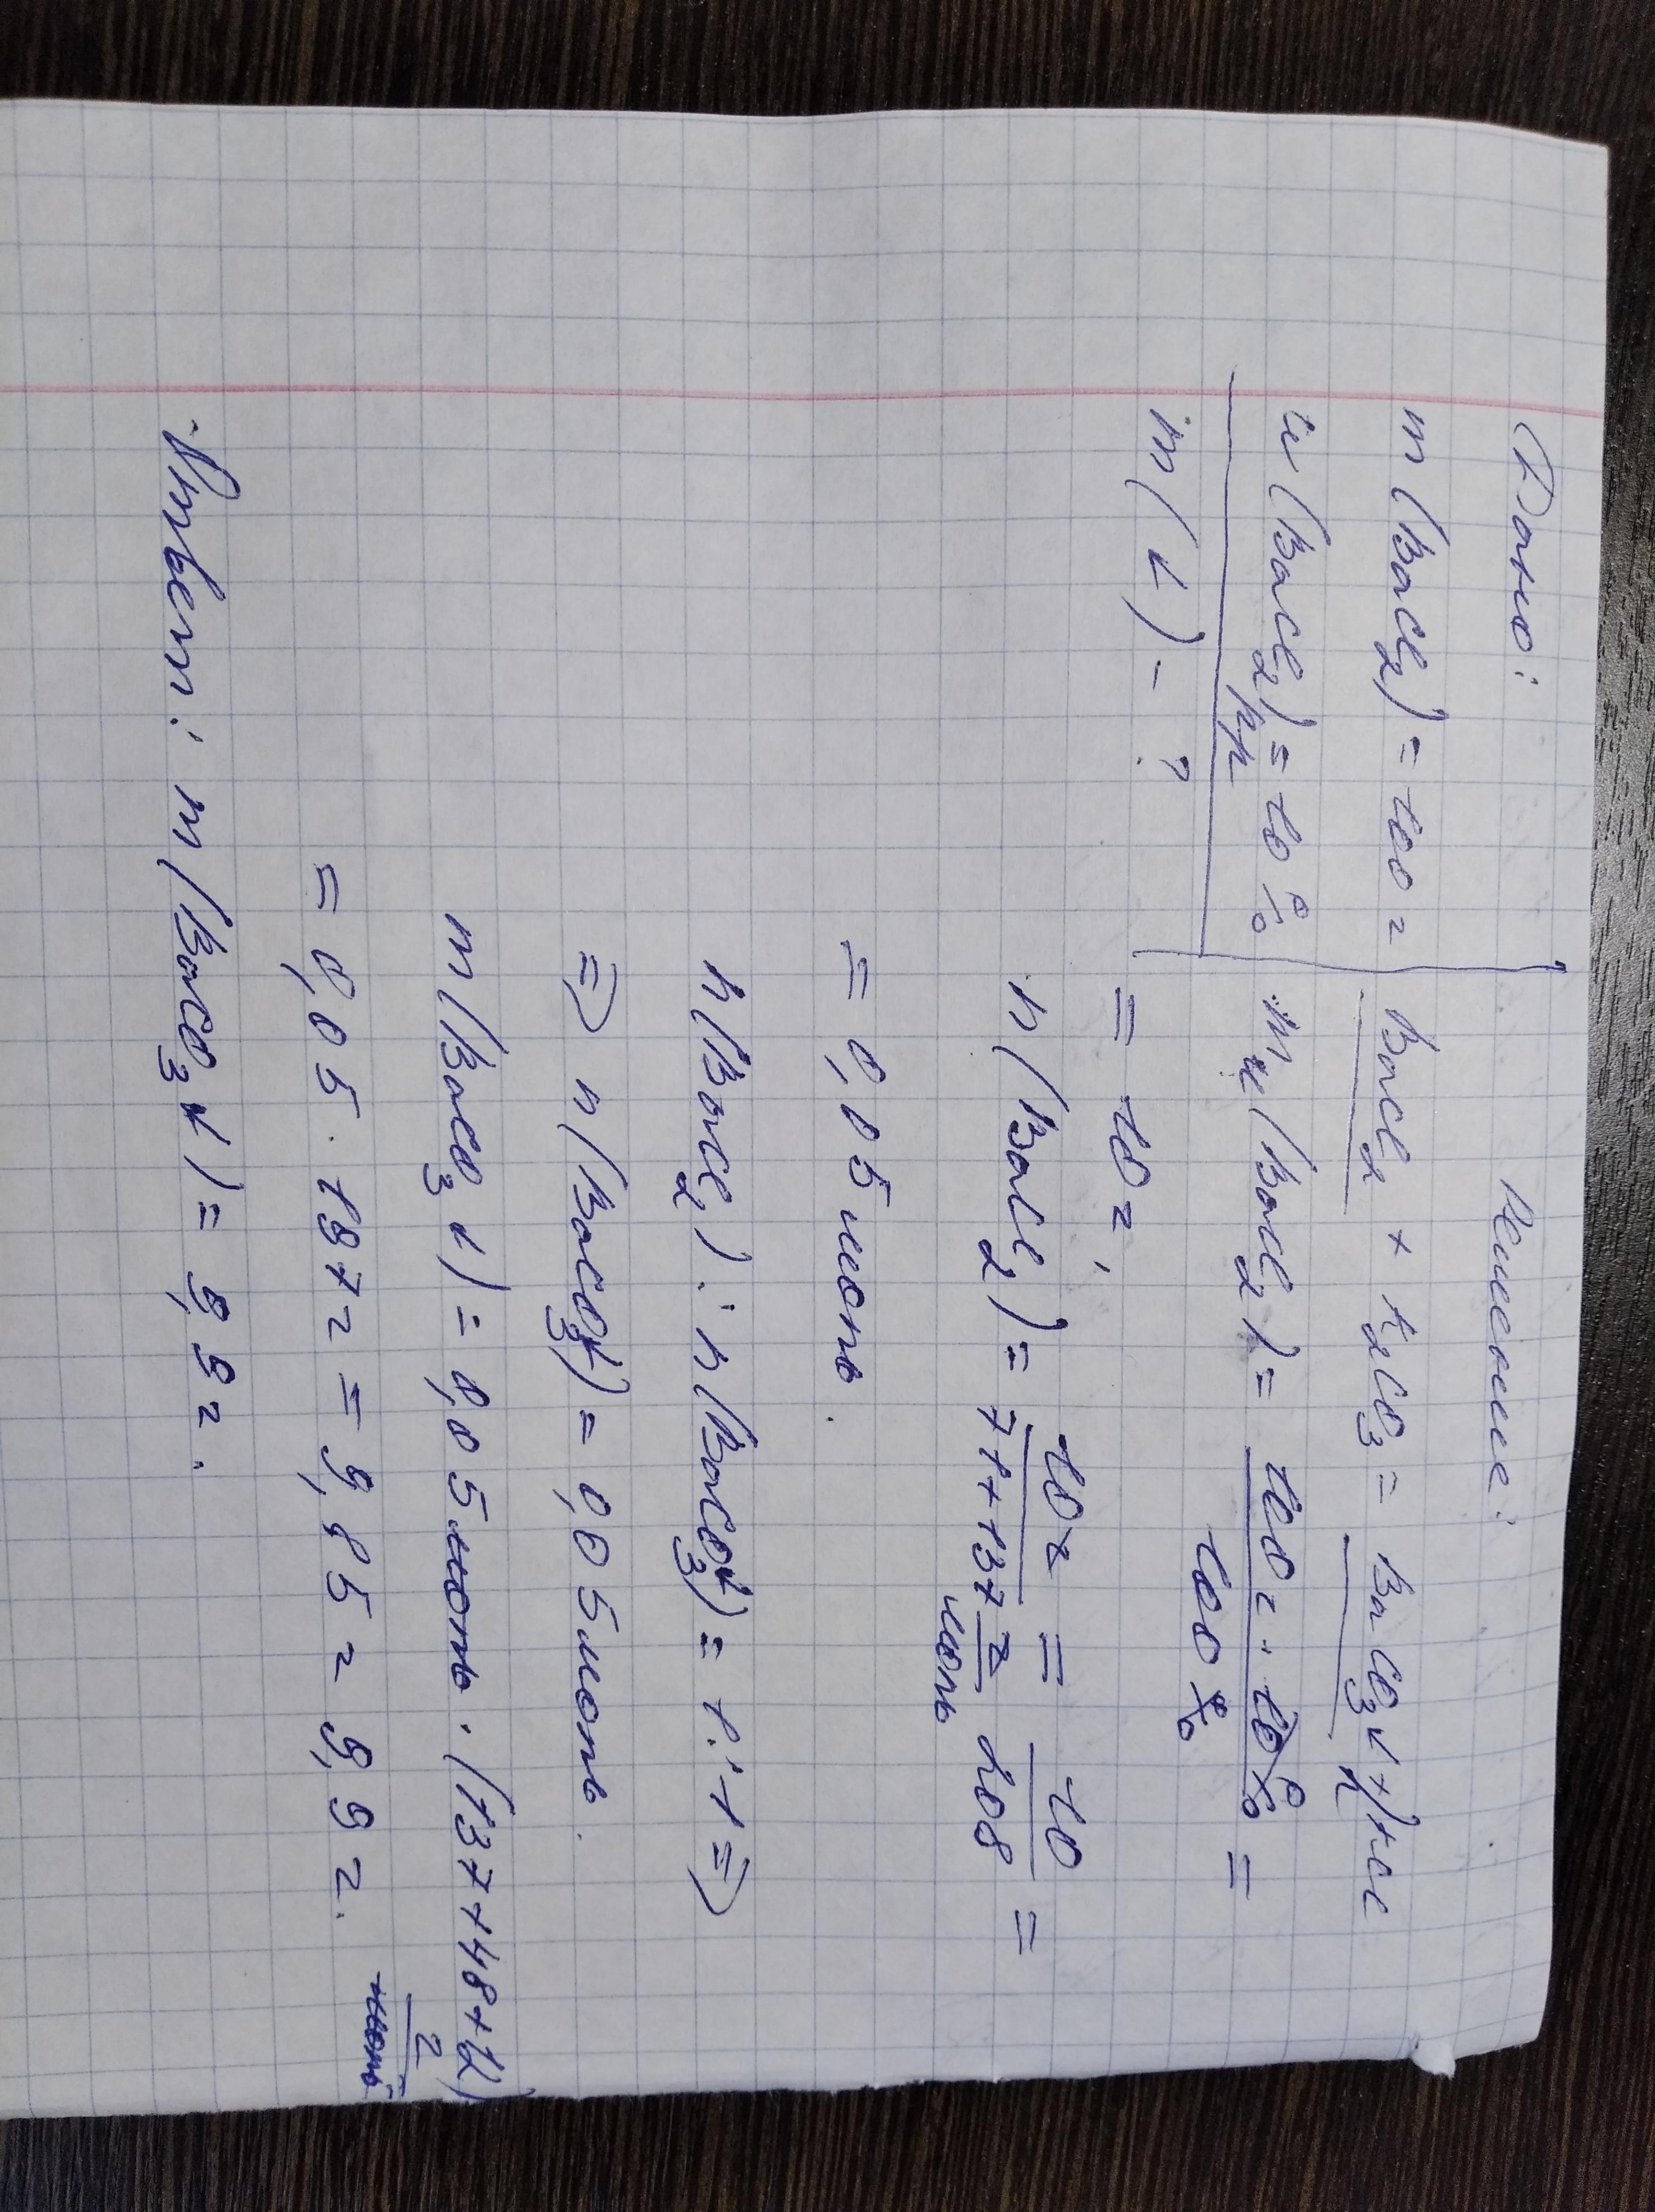 Дано:
Решение:
m(BaCl₂) = 100 г
BaCl₂ + K₂CO₃ = BaCO₃↓ + 2KCl
w(BaCl₂)рр = 10%
mч(BaCl₂) = 100г · 10% / 100% =
m(↓) - ?
= 10 г;
n(BaCl₂) = 10г / 71+137 г/моль = 10 / 208 =
= 0,05 моль.
n(BaCl₂) : n(BaCO₃↓) = 1:1 =>
=> n(BaCO₃↓) = 0,05 моль.
m(BaCO₃↓) = 0,05 моль · (137+48+12) г/моль
= 0,05 · 197 г = 9,85 г = 9,9 г.
Ответ: m(BaCO₃↓) = 9,9 г.